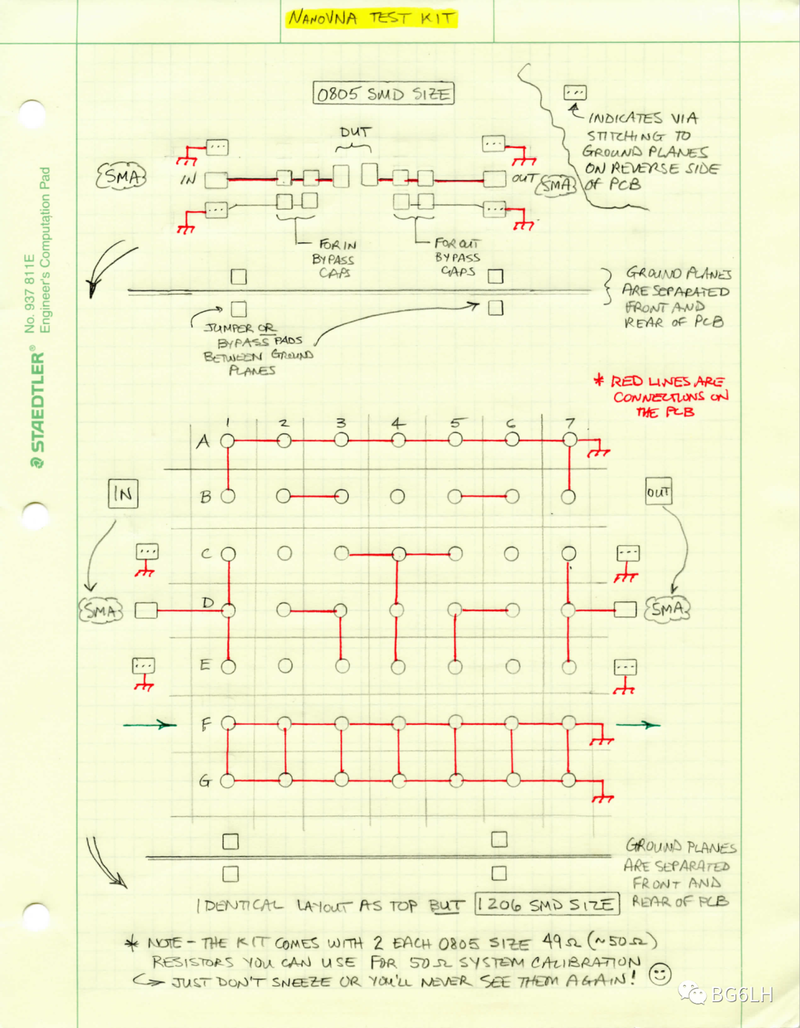 NANOVNA TEST KIT
0805 SMD SIZE
INDICATES VIA
STITCHING TO
GROUND PLANES
ON REVERSE SIDE
OF PCB
DUT
SMA
IN
OUT
SMA
FOR IN
BYPASS
CAPS
FOR OUT
BYPASS
CAPS
GROUND PLANES
ARE SEPARATED
FRONT AND
REAR OF PCB
JUMPER OR
BYPASS PADS
BETWEEN GROUND
PLANES
* RED LINES ARE
CONNECTIONS ON
THE PCB
1 2 3 4 5 6 7
A
B
IN
OUT
C
D
SMA
SMA
E
F
G
GROUND PLANES
ARE SEPARATED
FRONT AND
REAR OF PCB
IDENTICAL LAYOUT AS TOP BUT 1206 SMD SIZE
* NOTE - THE KIT COMES WITH 2 EACH 0805 SIZE 49Ω (~50Ω)
RESISTORS YOU CAN USE FOR 50Ω SYSTEM CALIBRATION
JUST DON'T SNEEZE OR YOU'LL NEVER SEE THEM AGAIN!
STAEDTLER® No. 937 811E
Engineer's Computation Pad
BG6LH